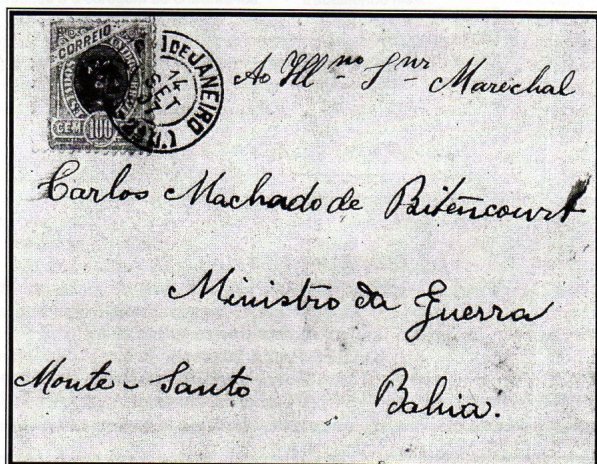 CORREIO
CEM 100
DE JANEIRO
14
SET
97
Ao Ill^mo Snr Marechal
Carlos Machado de Bitencourt
Ministro da Guerra
Monte-Santo Bahia.